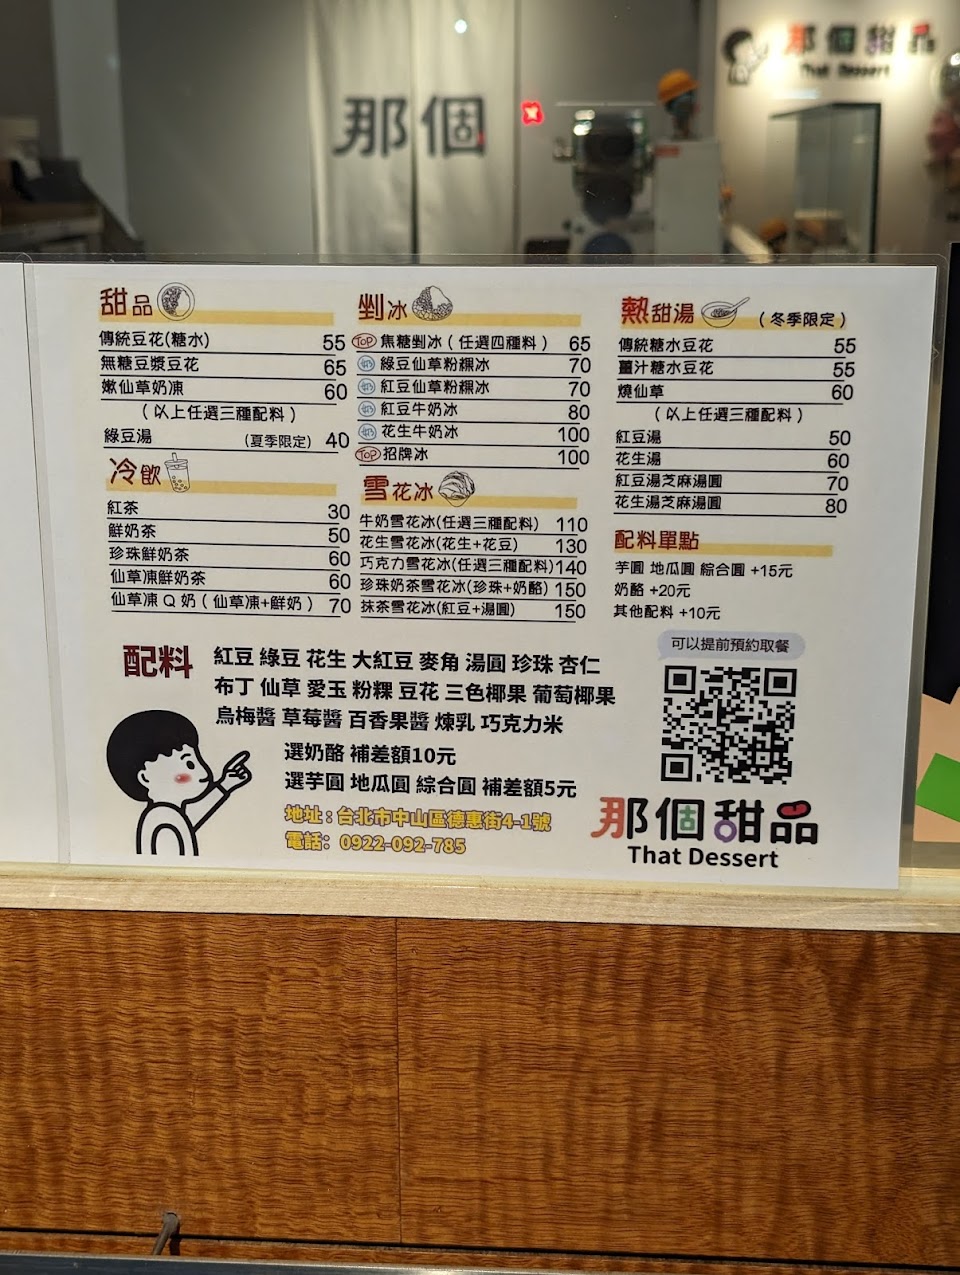 那個甜品
That Dessert
那個
甜品
傳統豆花(糖水) 55
無糖豆漿豆花 65
嫩仙草奶凍 60
(以上任選三種配料)
綠豆湯 (夏季限定) 40
冷飲
紅茶 30
鮮奶茶 50
珍珠鮮奶茶 60
仙草凍鮮奶茶 60
仙草凍Q奶(仙草凍+鮮奶) 70
剉冰
TOP 焦糖剉冰(任選四種料) 65
奶 綠豆仙草粉粿冰 70
奶 紅豆仙草粉粿冰 70
奶 紅豆牛奶冰 80
奶 花生牛奶冰 100
TOP 招牌冰 100
雪花冰
牛奶雪花冰(任選三種配料) 110
花生雪花冰(花生+花豆) 130
巧克力雪花冰(任選三種配料) 140
珍珠奶茶雪花冰(珍珠+奶酪) 150
抹茶雪花冰(紅豆+湯圓) 150
熱甜湯 (冬季限定)
傳統糖水豆花 55
薑汁糖水豆花 55
燒仙草 60
(以上任選三種配料)
紅豆湯 50
花生湯 60
紅豆湯芝麻湯圓 70
花生湯芝麻湯圓 80
配料單點
芋圓 地瓜圓 綜合圓 +15元
奶酪 +20元
其他配料 +10元
可以提前預約取餐
配料 紅豆 綠豆 花生 大紅豆 麥角 湯圓 珍珠 杏仁
布丁 仙草 愛玉 粉粿 豆花 三色椰果 葡萄椰果
烏梅醬 草莓醬 百香果醬 煉乳 巧克力米
選奶酪 補差額10元
選芋圓 地瓜圓 綜合圓 補差額5元
地址：台北市中山區德惠街4-1號
電話：0922-092-785
那個甜品
That Dessert